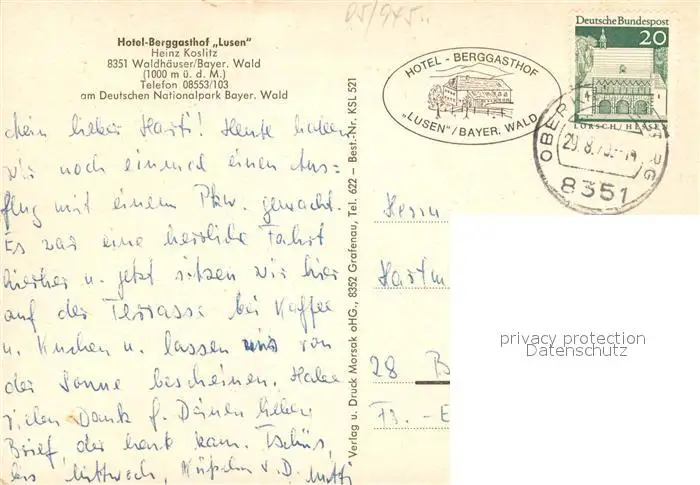 05/945.
Hotel-Berggasthof „Lusen"
Heinz Koslitz
8351 Waldhäuser/Bayer. Wald
(1000 m ü. d. M.)
Telefon 08553/103
am Deutschen Nationalpark Bayer. Wald
HOTEL - BERGGASTHOF
„LUSEN"/BAYER. WALD
Deutsche Bundespost
20
LORSCH/HESSEN
8351
Mein lieber Harti! Heute haben
wir noch einmal einen Aus-
flug mit einem Pkw. gemacht.
Es war eine herrliche Fahrt
hierher u. jetzt sitzen wir hier
auf der Terrasse bei Kaffee
u. Kuchen u. lassen uns von
der Sonne bescheinen. Habe
vielen Dank f. Deinen lieben
Brief, der heute kam. Tschüs,
bis Mittwoch, Küßchen v. D. Mutti
Verlag u. Druck Morsak oHG., 8352 Grafenau, Tel. 622 – Best.-Nr. KSL 521
Herrn
Hartm
28 B
privacy protection
Datenschutz